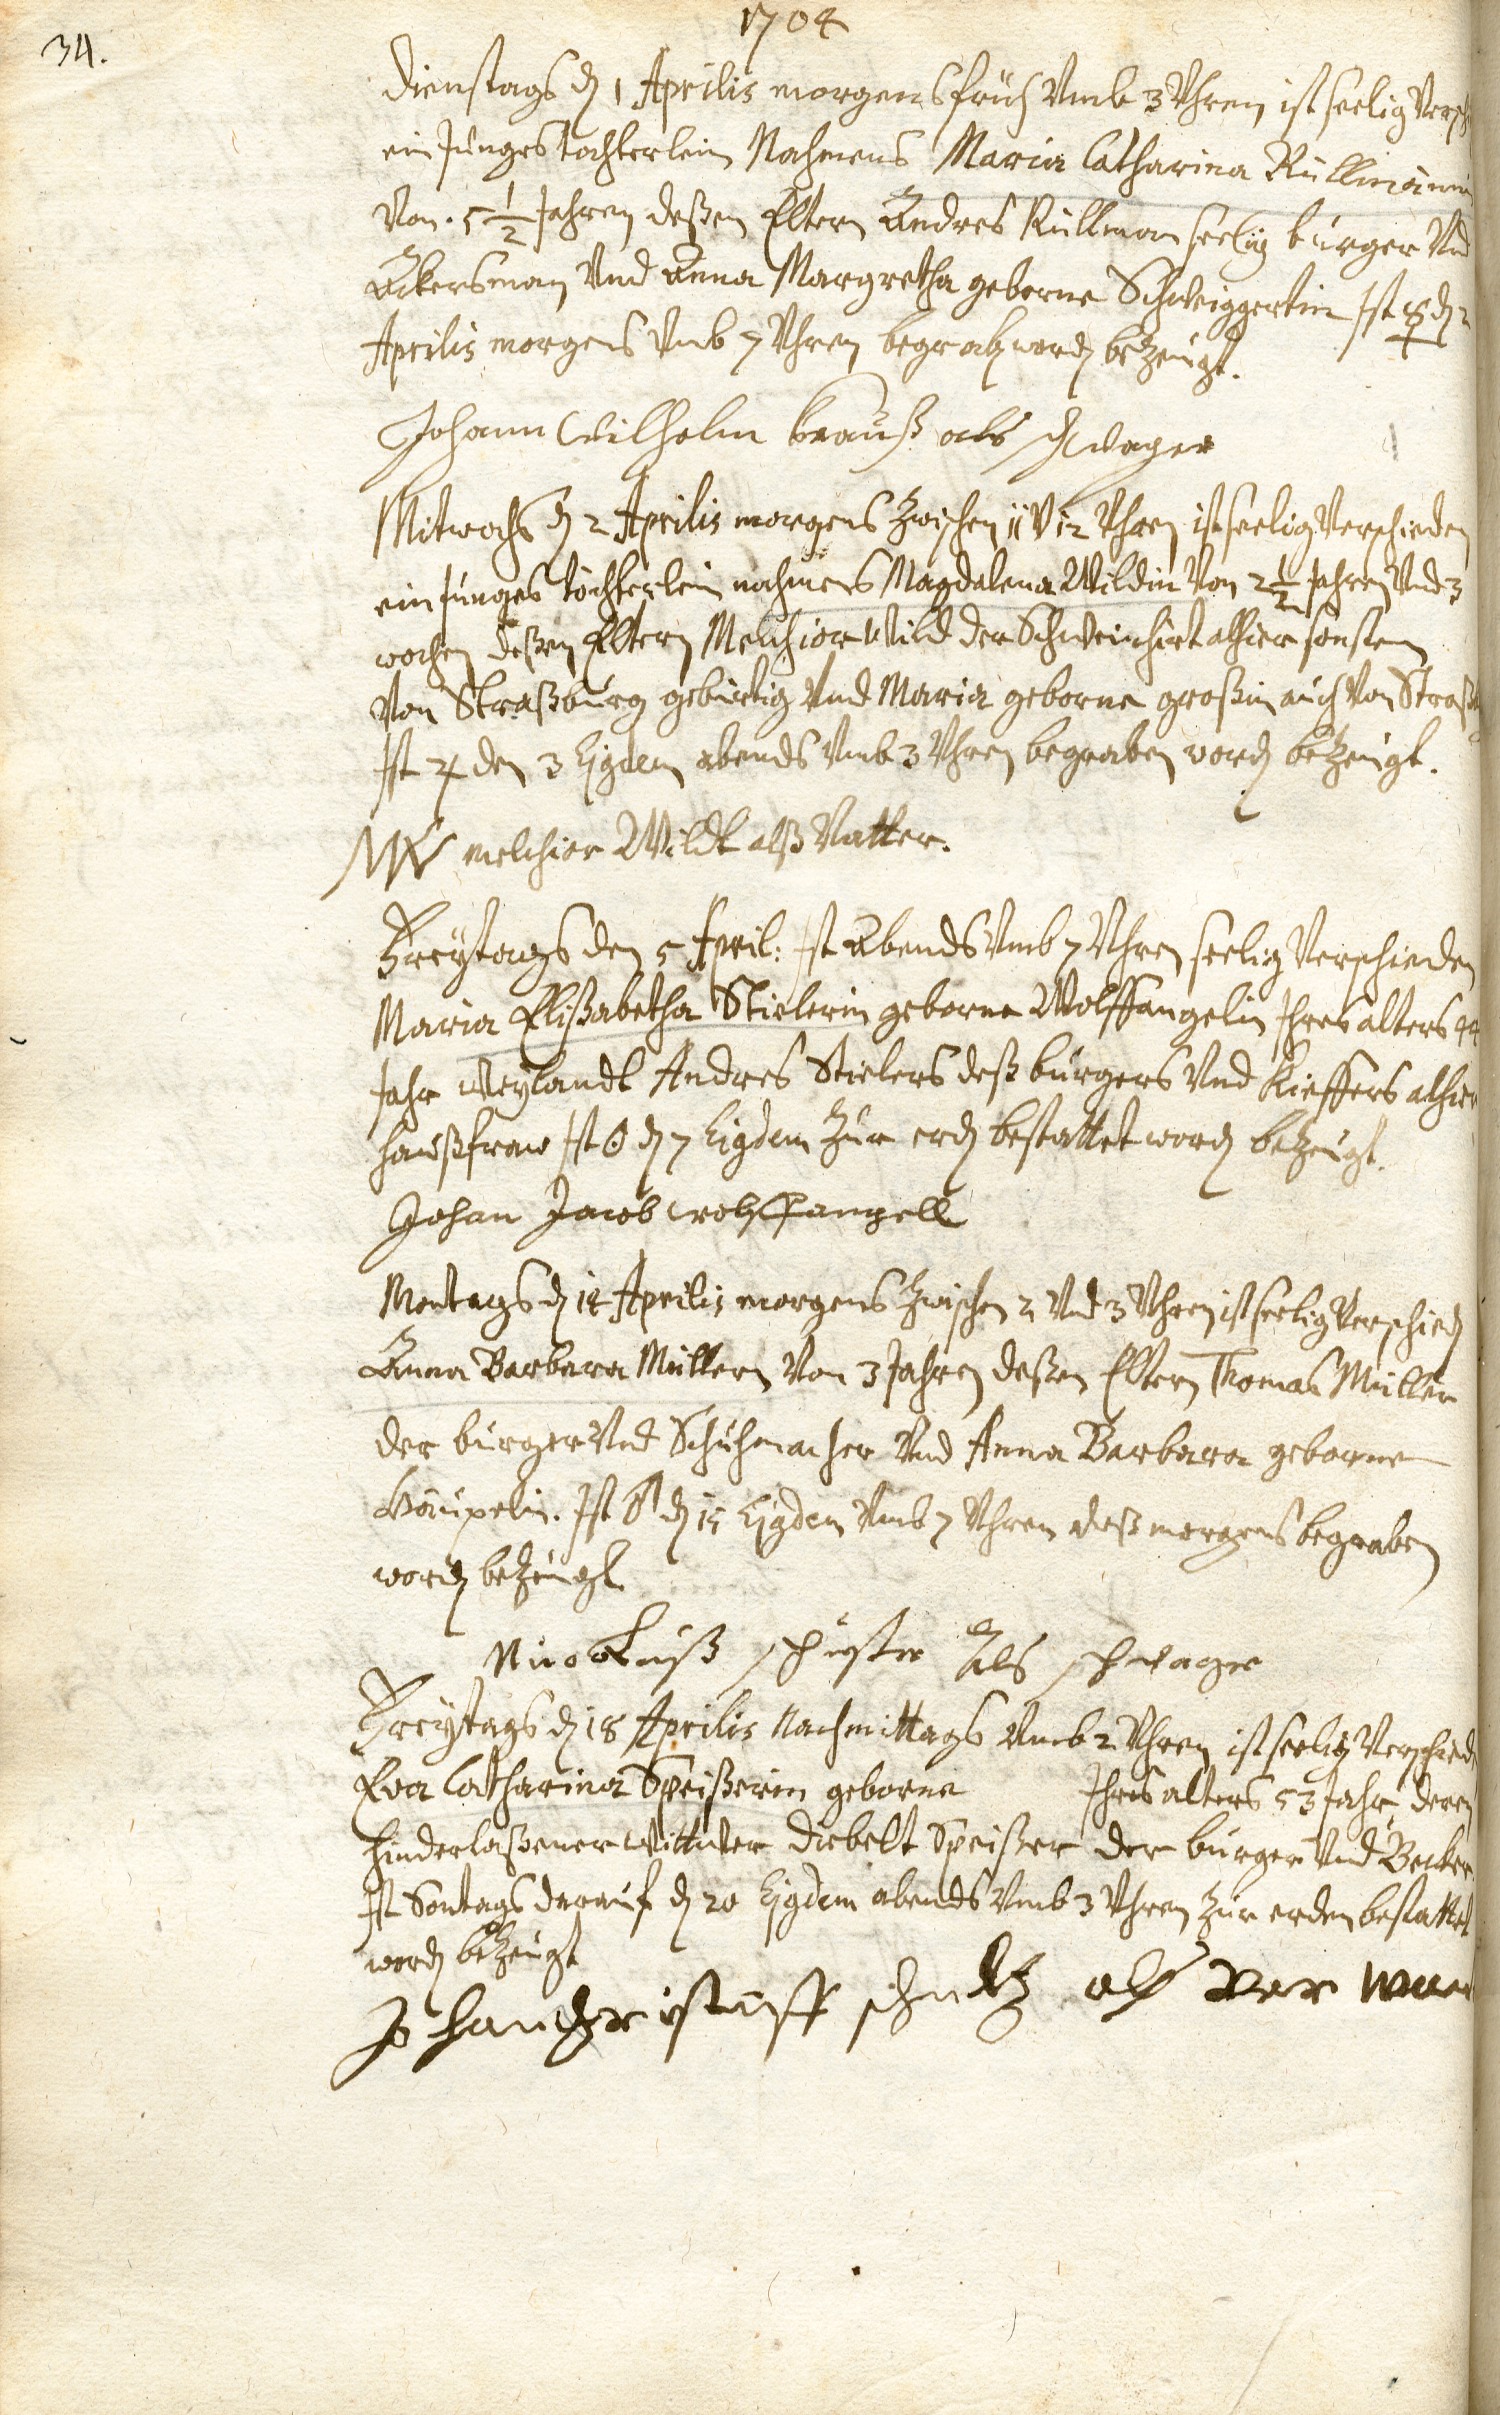 34.
1704
Dienstags dn 1 Aprilis morgens früh Vmb 3 Vhren ist seelig Versch
ein junges töchterlein Nahmens Maria Catharina Rüllmännin
Von 5 1/2 Jahren deßen Eltern Andres Rüllman seelig burger Vnd
Ackersman Vnd Anna Margretha geborne Schweiggertin ist ☿ dn 2
Aprilis morgens Vmb 7 Vhren begrabn wordn bezeugt.
Johann Wilhelm krauß als schwager
Mitwochs dn 2 Aprilis morgens zwischen 11 V 12 Vhren ist seelig Verschieden
ein junges töchterlein nahmens Magdalena Wildin Von 2 1/2 Jahren Vnd 3
wochen deßen Eltern Melchior Wild der Schweinhirt alhier sonsten
Von Straßburg gebürtig Vnd Maria geborne großin auch Von Straßb
ist ♃ den 3 Ejgdem abends Vmb 3 Vhren begraben wordn bezeugt.
MW melchior Wildt alß Vatter.
Freytags den 5 April: ist Abends Vmb 7 Vhren seelig Verschieden
Maria Elisabetha Stielerin geborne Wolffangelin Ihres alters 44
Jahr Weylandt Andres Stielers deß burgers Vnd Kieffers alhier
haußfraw ist dn 7 Ejgdem zur erdn bestattet wordn bezeugt.
Johan Jacob wolffangell
Montags dn 14 Aprilis morgens zwischen 2 Vnd 3 Vhren ist seelig Verschiedn
Anna Barbara Müllern Von 3 Jahren deßen Eltern Thomas Müller
der burger Vnd Schuhmacher Vnd Anna Barbara geborne
ist ♂ dn 15 Ejgdem Vmb 7 Vhren deß morgens begraben
wordn bezeugt
Nicolauß schuster Als schwager
Freytags dn 18 Aprilis Nachmittags Vmb 2 Vhren ist seelig Verschiedn
Eva Catharina Speißerin geborne Ihres alters 53 Jahr, deren
hinderlaßener Wittwer Diebolt Speißer der burger Vnd Becker
ist Sontags darauf dn 20 Ejgdem abends Vmb 3 Vhren zur erden bestattet
wordn bezeugt
Johan schultz alß